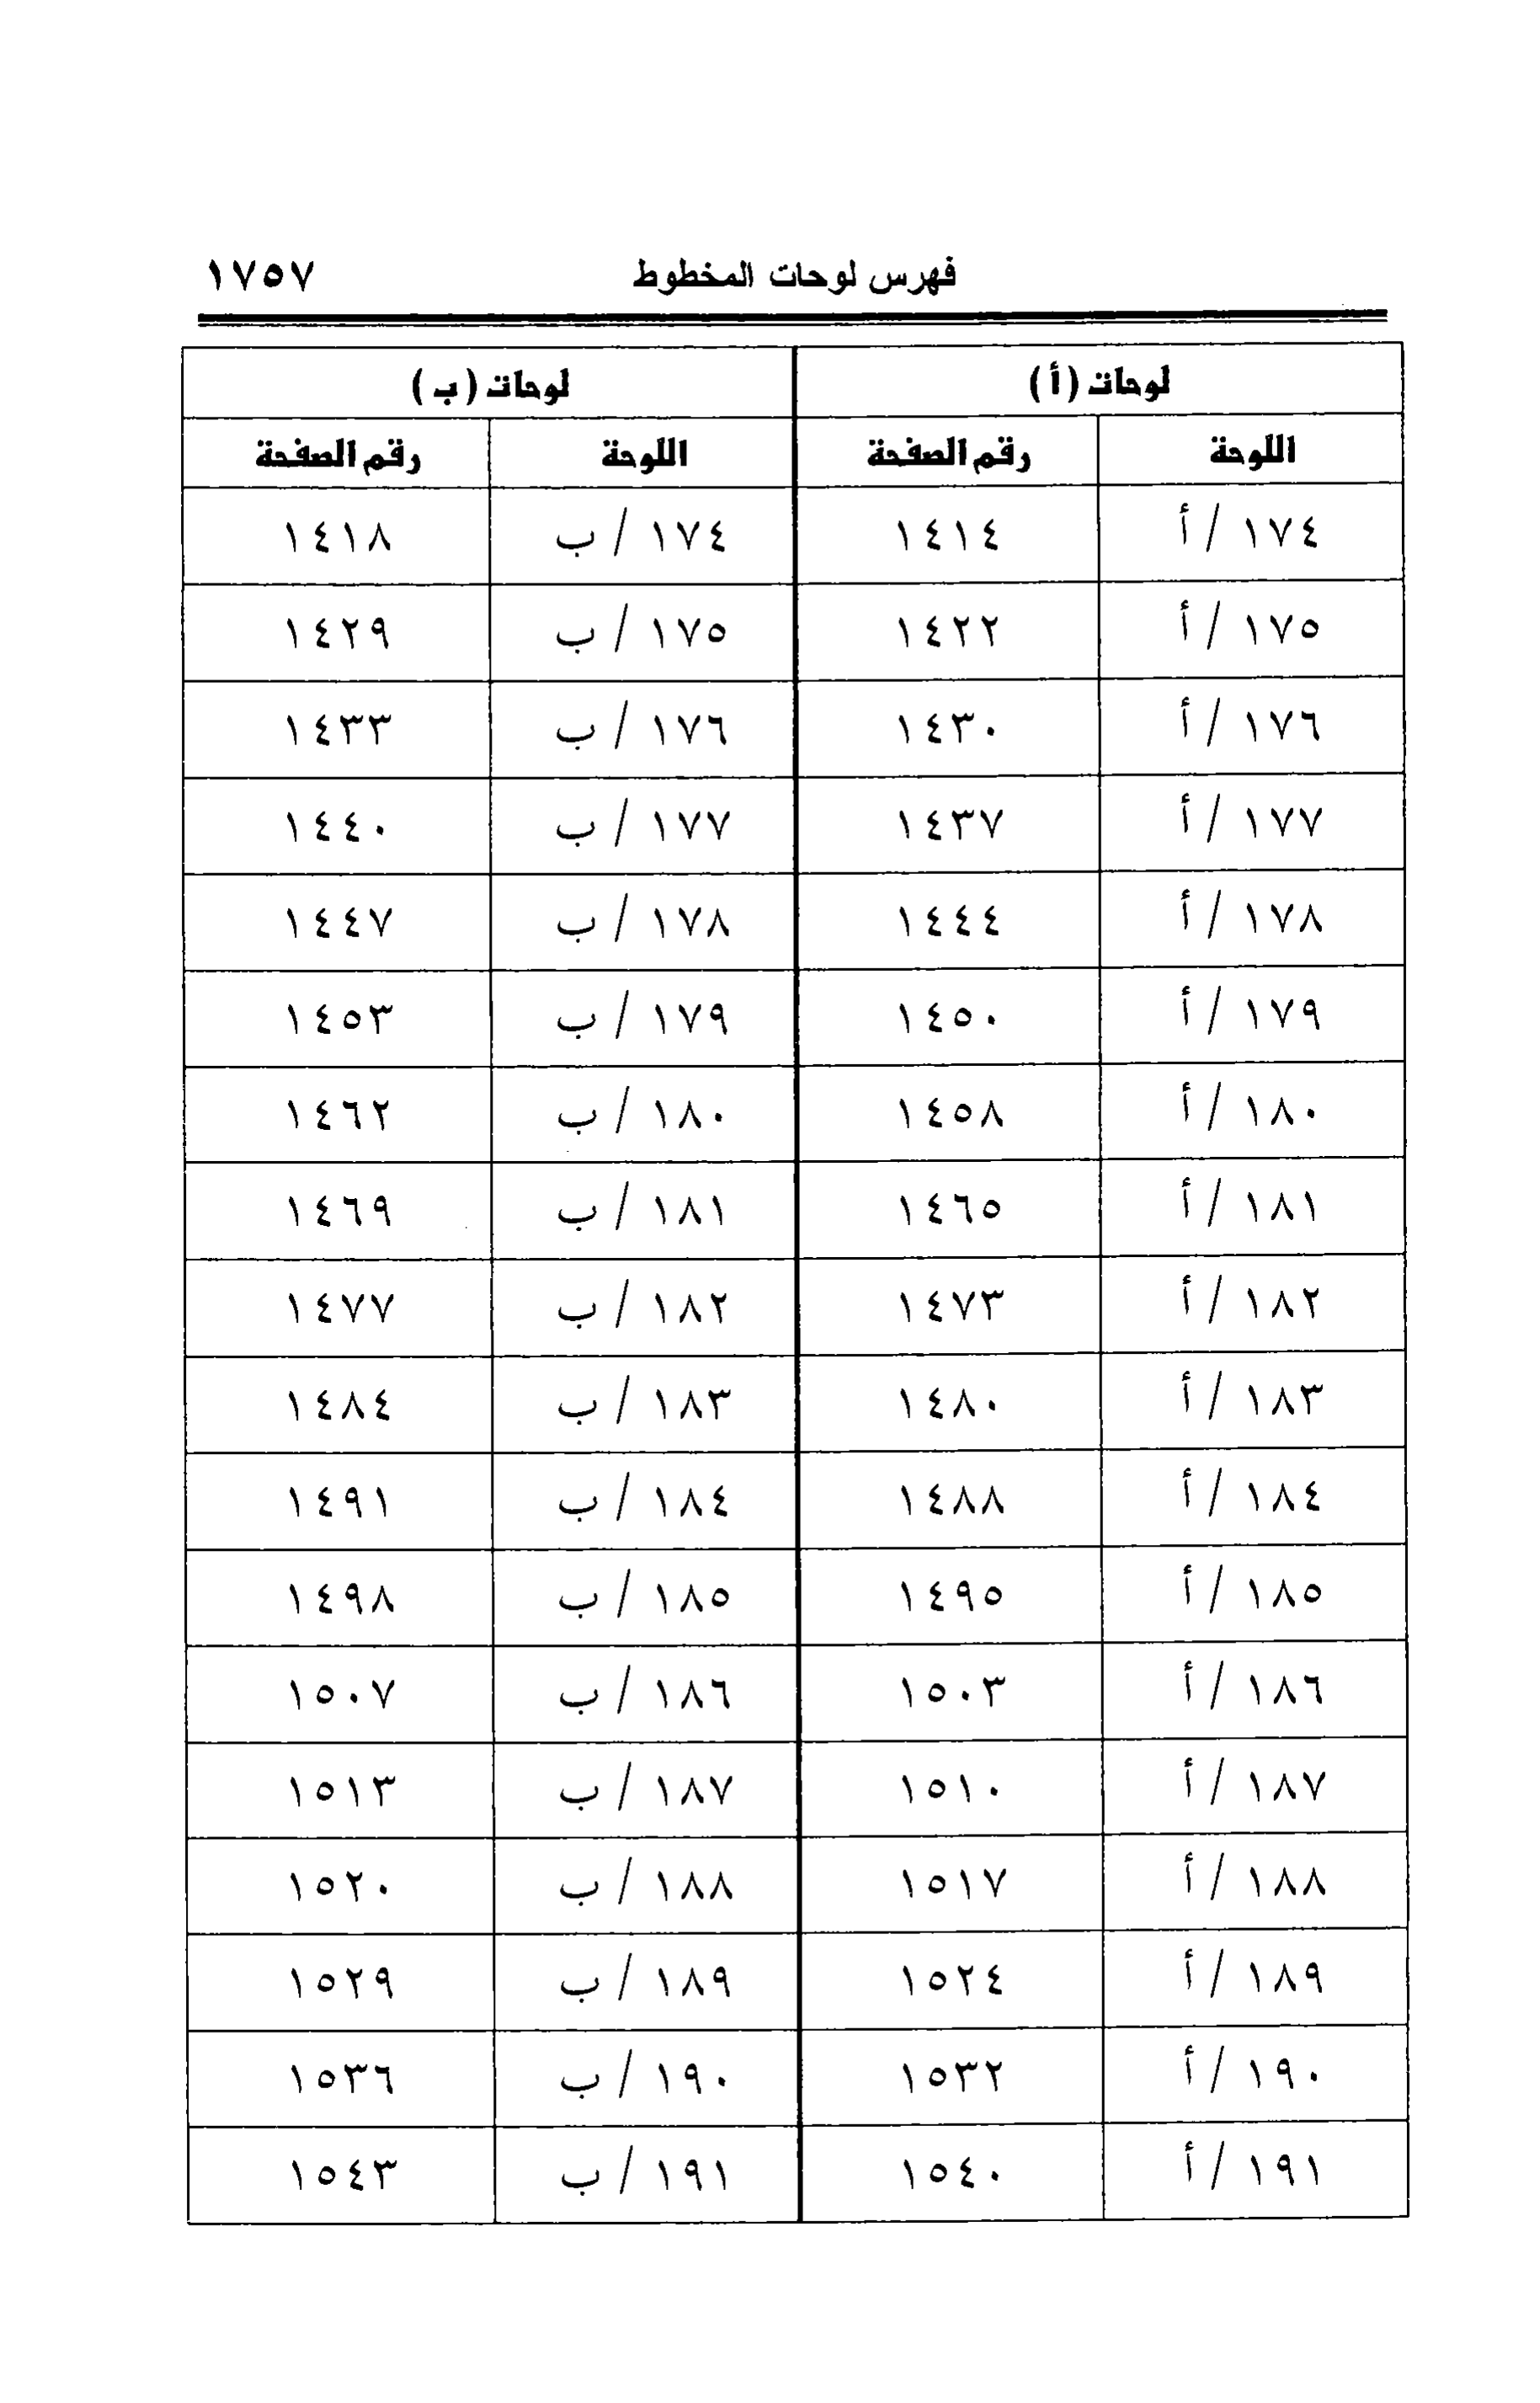 فهرس لوحات المخطوط ١٧٥٧
لوحات (أ) لوحات (ب)
اللوحة رقم الصفحة اللوحة رقم الصفحة
١٧٤ / أ ١٤١٤ ١٧٤ / ب ١٤١٨
١٧٥ / أ ١٤٢٢ ١٧٥ / ب ١٤٢٩
١٧٦ / أ ١٤٣٠ ١٧٦ / ب ١٤٣٣
١٧٧ / أ ١٤٣٧ ١٧٧ / ب ١٤٤٠
١٧٨ / أ ١٤٤٤ ١٧٨ / ب ١٤٤٧
١٧٩ / أ ١٤٥٠ ١٧٩ / ب ١٤٥٣
١٨٠ / أ ١٤٥٨ ١٨٠ / ب ١٤٦٢
١٨١ / أ ١٤٦٥ ١٨١ / ب ١٤٦٩
١٨٢ / أ ١٤٧٣ ١٨٢ / ب ١٤٧٧
١٨٣ / أ ١٤٨٠ ١٨٣ / ب ١٤٨٤
١٨٤ / أ ١٤٨٨ ١٨٤ / ب ١٤٩١
١٨٥ / أ ١٤٩٥ ١٨٥ / ب ١٤٩٨
١٨٦ / أ ١٥٠٣ ١٨٦ / ب ١٥٠٧
١٨٧ / أ ١٥١٠ ١٨٧ / ب ١٥١٣
١٨٨ / أ ١٥١٧ ١٨٨ / ب ١٥٢٠
١٨٩ / أ ١٥٢٤ ١٨٩ / ب ١٥٢٩
١٩٠ / أ ١٥٣٢ ١٩٠ / ب ١٥٣٦
١٩١ / أ ١٥٤٠ ١٩١ / ب ١٥٤٣